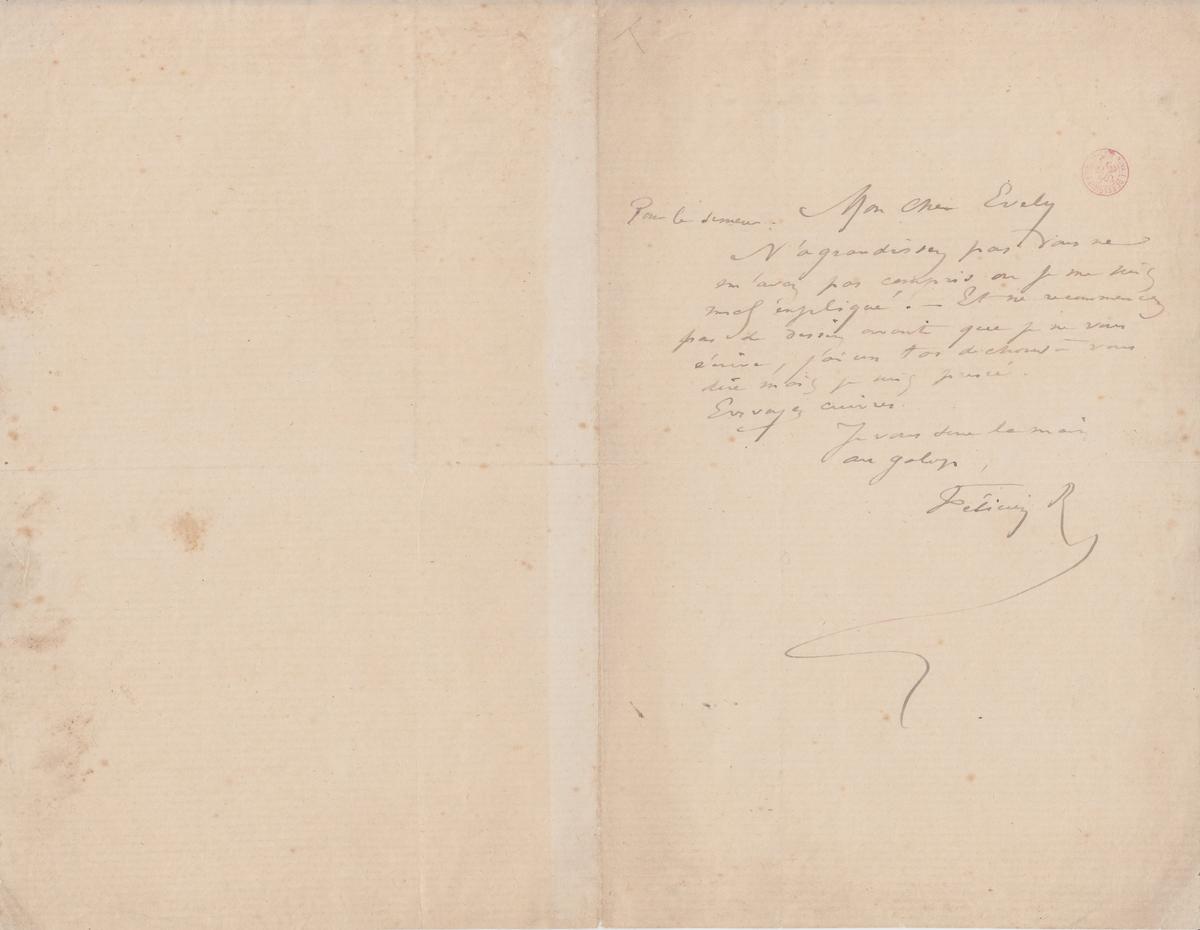 Pour le semeur. Mon cher Evely
N'agrandissez pas Vous ne
m'avez pas compris ou je me suis
mal expliqué. – Et ne recommencez
pas de dessin avant que je ne vous
écrive, j'ai un tas de choses à vous
dire mais je suis pressé.
Envoyez cuivres.
Je vous serre la main
au galop,
Félicien R